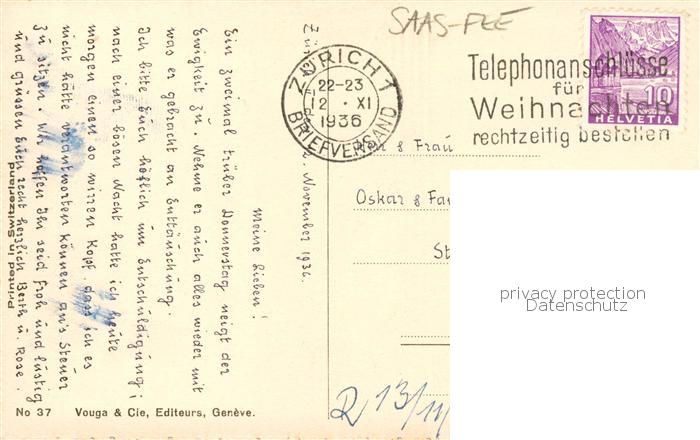 SAAS-FEE
Telephonanschlüsse
für
Weihnachten
rechtzeitig bestellen
10
HELVETIA
ZÜRICH 1
22-23
12 · XI
1936
BRIEFVERSAND
November 1936.
Meine Lieben!
Ein zweimal trüber Donnerstag neigt der
Ewigkeit zu. Nehme er auch alles wieder mit
was er gebracht an Enttäuschung.
Ich bitte Euch höflich um Entschuldigung;
nach einer bösen Nacht hatte ich heute
morgen einen so wirren Kopf, dass ich es
nicht hätte verantworten können an's Steuer
zu sitzen. Wir hoffen Ihr seid froh und lustig
und grüssen Euch recht herzlich Berth u. Rose.
& Frau
Oskar &
St
privacy protection
Datenschutz
R 13/11/
Printed in Switzerland
No 37 Vouga & Cie, Editeurs, Genève.